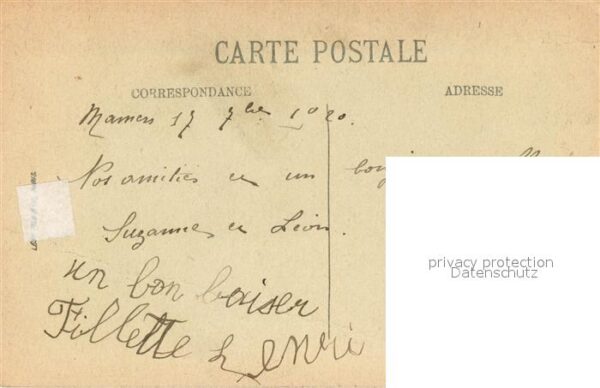 CARTE POSTALE
CORRESPONDANCE
ADRESSE
Mamers 17 7bre 1920.
Nos amitiés et un
Suzanne et Léon.
un bon baiser
Fillette Henri
privacy protection
Datenschutz